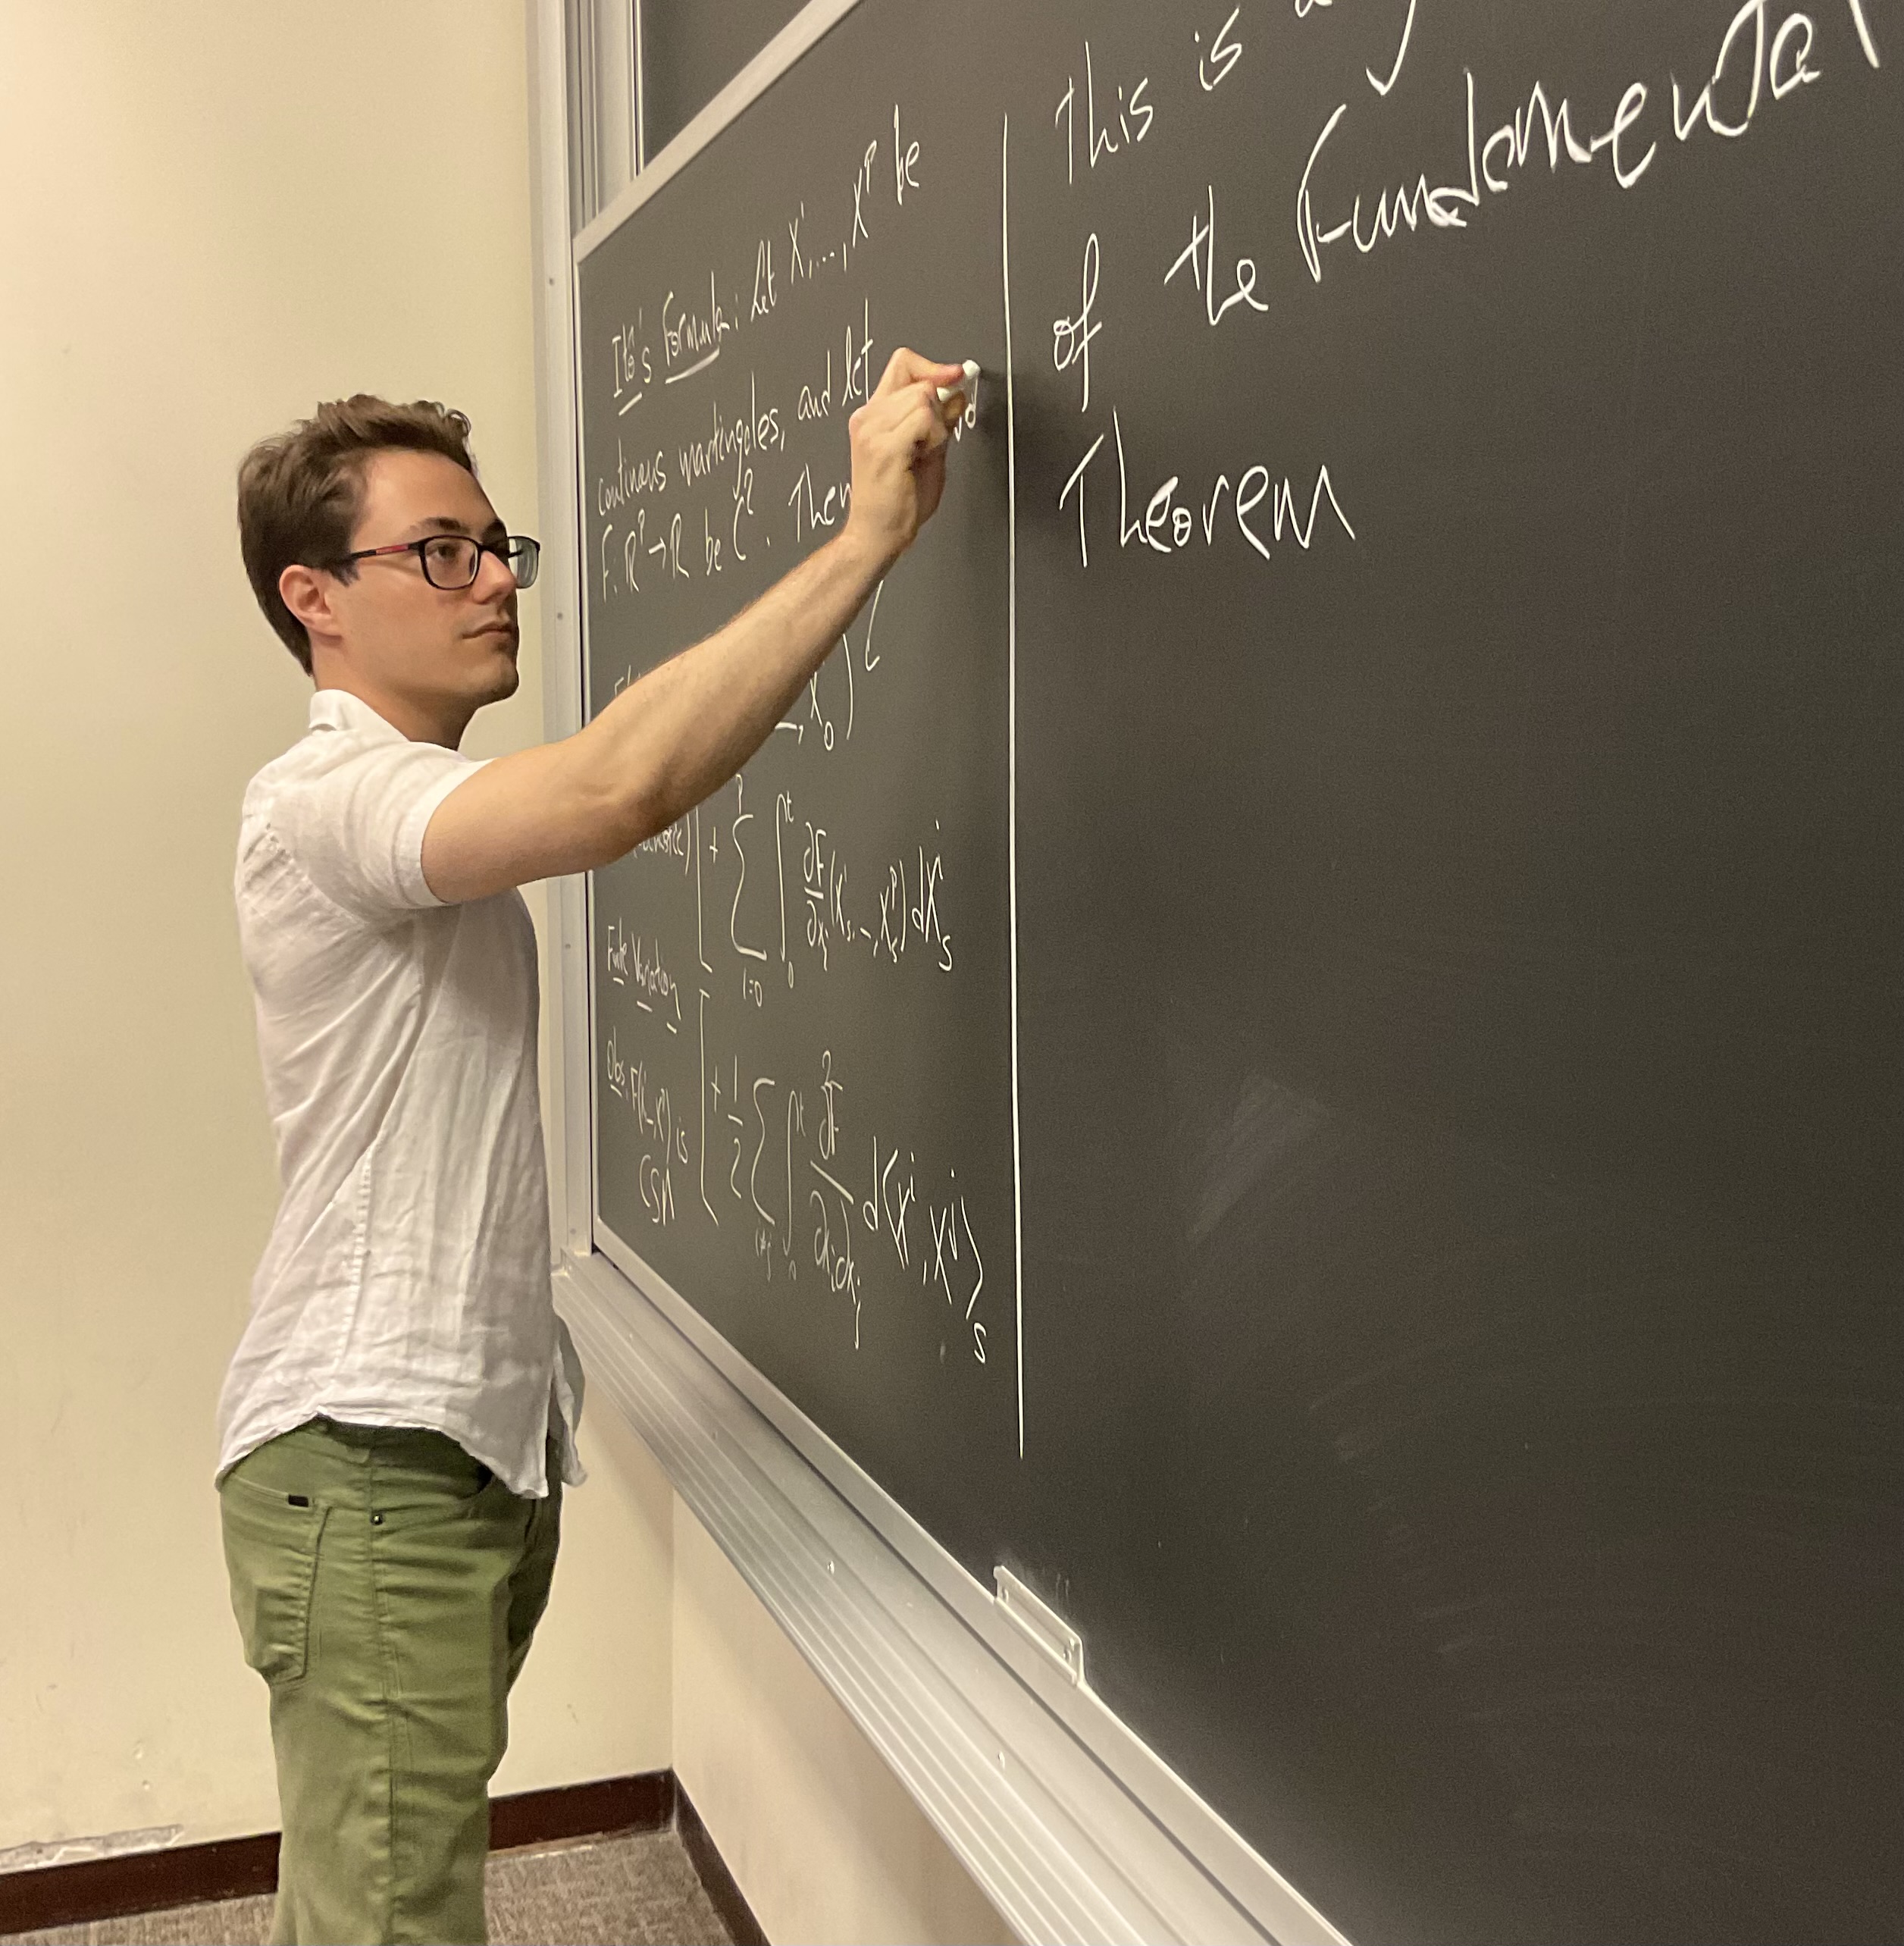 Itô's Formula: Let X¹,...,Xᵖ be
continous martingales, and let
F: ℝᵖ → ℝ be C². Then
X₀)
+ ∑_{i=0}^{p} ∫_0^t ∂F/∂x_i (X_s¹, –, X_sᵖ) dX_s^i
Finite Variation
Obs: F(X¹–Xᵖ) is
CSM
+ 1/2 ∑ ∫_0^t ∂²F/∂x_i∂x_j d⟨X^i, X^j⟩_s
This is a
of the Fundamental
Theorem